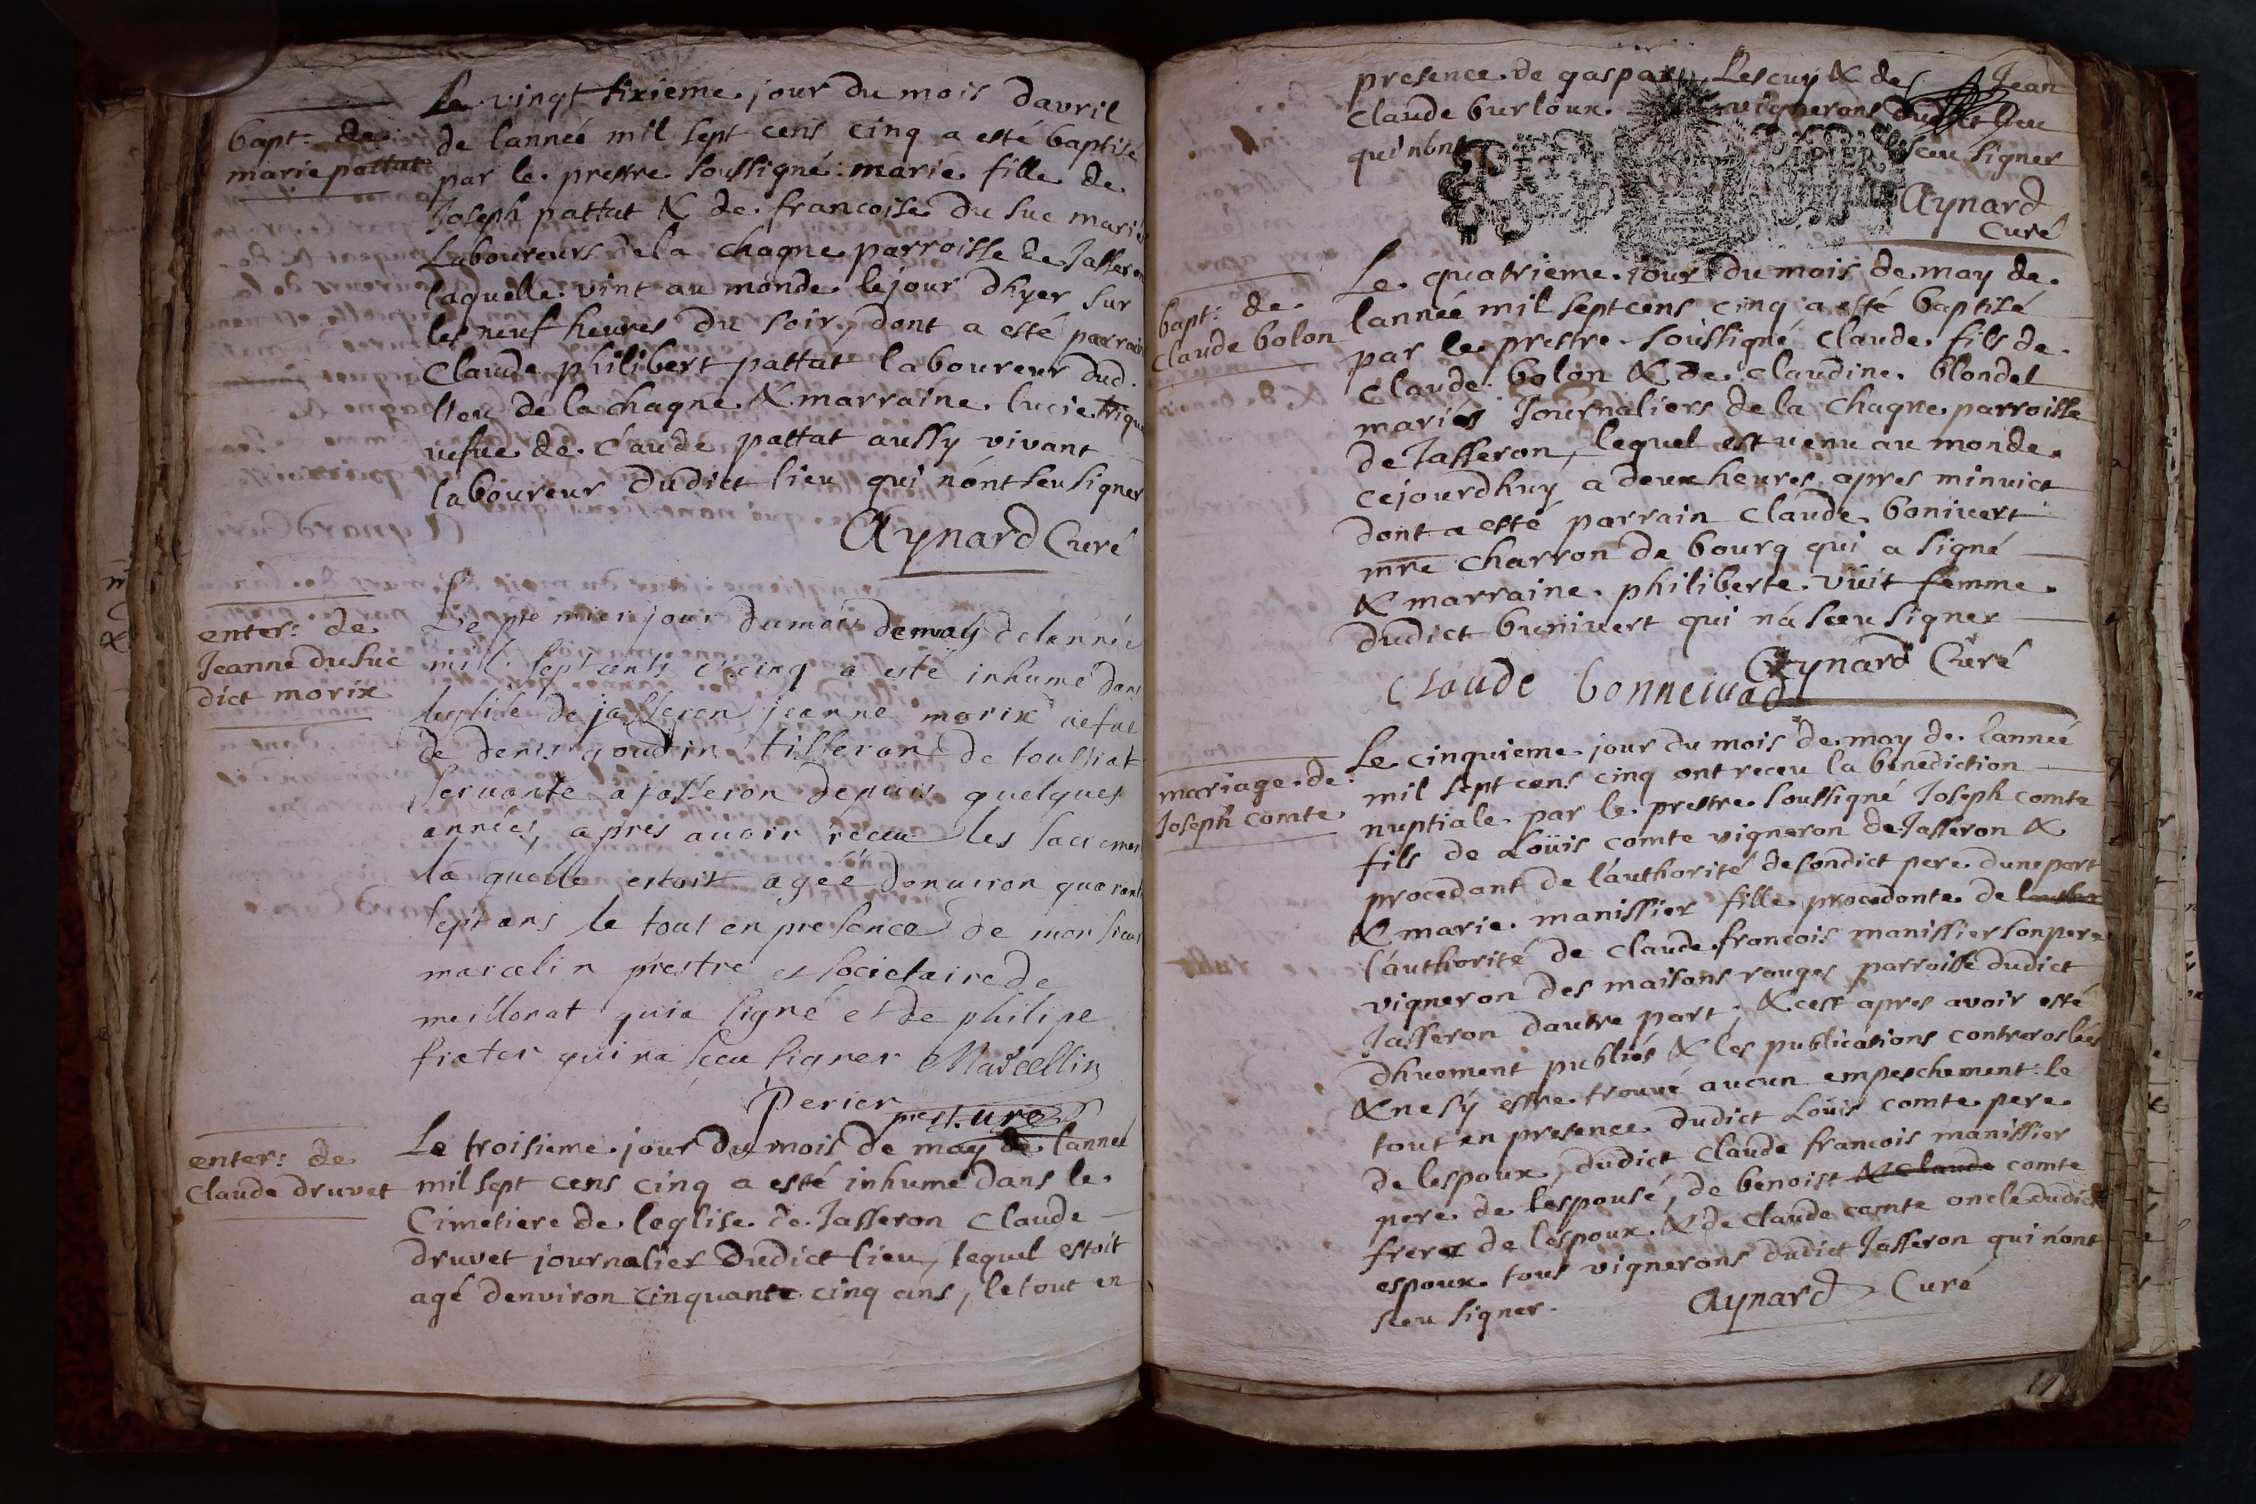 bapt: de
marie pattut
Le vingt sixieme jour du mois davril
de lannée mil sept cens cinq a esté baptisé
par le prestre soussigné marie fille de
Joseph pattut & de francoise du suc mariés
Laboureurs de la chagne parroisse de Jasseron
laquelle vint au monde le jour dhyer sur
les neuf heures du soir, dont a esté parrain
Claude philibert pattut laboureur dud.
lieu de la chagne & marraine lucie
vefue de Claude pattut aussy vivant
laboureur dudict lieu qui nónt sceu signer
Aynard Curé
enter: de
Jeanne du suc
dict morix
Le premier jour du mois de may de lannée
mill sept cents cinq a esté inhumé dans
leglise de jasseron jeanne morix vefue
de denis goudrin tisseran de toussiat
servante a jasseron depuis quelques
années, apres auoir receu les sacremens
la quelle estoit agée denuiron quarante
sept ans le tout en presence de monsieur
marcelin prestre et societaire de
meillonat qui a signé et de philipe
fieter qui na sceu signer Marcellin
Perier prest. ure
enter: de
Claude druvet
Le troisieme jour du mois de may de lannée
mil sept cens cinq a esté inhumé dans le
Cimetiere de leglise de Jasseron Claude
druvet journalier dudict lieu, lequel estoit
agé denviron cinquante cinq ans, le tout en
presence de gaspar Lescuy & de Jean
Claude burloux vignerons dudict lieu
qui nónt sceu signer
Aynard
Curé
bapt: de
Claude bolon
Le quatrieme jour du mois de may de
lannée mil sept cens cinq a esté baptisé
par le prestre soussigné Claude fils de
Claude bolon & de claudine blondel
mariés Journaliers de la chagne parroisse
de Jasseron, lequel est venu au monde
cejourdhuy a deux heures apres minuict
dont a esté parrain Claude bonivert
mre charron de bourg qui a signé
& marraine philiberte vüit femme
dudict bunivert qui ná sceu signer
Aynard Curé
Claude bonneivad
mariage de
Joseph comte
Le cinquieme jour du mois de may de lannée
mil sept cens cinq ont receu la benediction
nuptiale par le prestre soussigné Joseph comte
fils de Loüis comte vigneron de Jasseron &
procedant de láuthorité de sondict pere dune part
& marie manissier fille procedante de lauthor
láuthorité de Claude francois manissier son pere
vigneron des maisons rouges parroisse dudict
Jasseron dautre part, & cest apres avoir esté
dhuement publiés & les publications controroslées
& nesÿ estre trouvé aucun empeschement: le
tout en presence dudict Loüis comte pere
de lespoux, dudict Claude francois manissier
pere de lespousé, de benoist & Claude comte
frere de lespoux & de Claude comte oncle dudict
espoux tous vignerons dudict Jasseron qui nónt
sceu signer. Aynard Curé